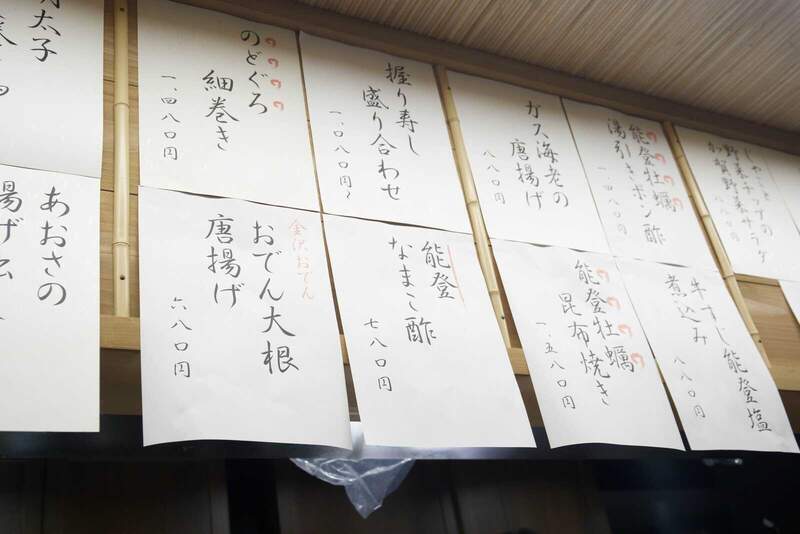 明太子
のどぐろ
細巻き
一、四八〇円
握り寿し
盛り合わせ
一、〇八〇円〜
ガス海老の
唐揚げ
八八〇円
能登牡蠣
湯引きポン酢
一、四八〇円
加賀野菜サラダ
あおさの
揚げ
金沢おでん
おでん大根
唐揚げ
六八〇円
能登
なまこ酢
七八〇円
能登牡蠣
昆布焼き
一、五八〇円
牛すじ能登塩
煮込み
八八〇円